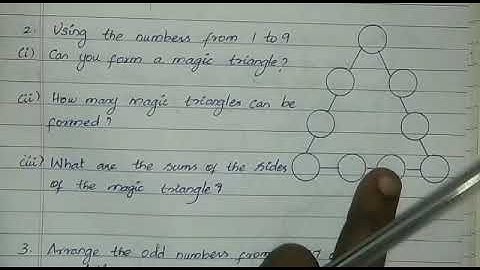 2. Using the numbers from 1 to 9
(i) Can you form a magic triangle?
(ii) How many magic triangles can be
formed?
(iii) What are the sums of the sides
of the magic triangle?
3. Arrange the odd numbers from